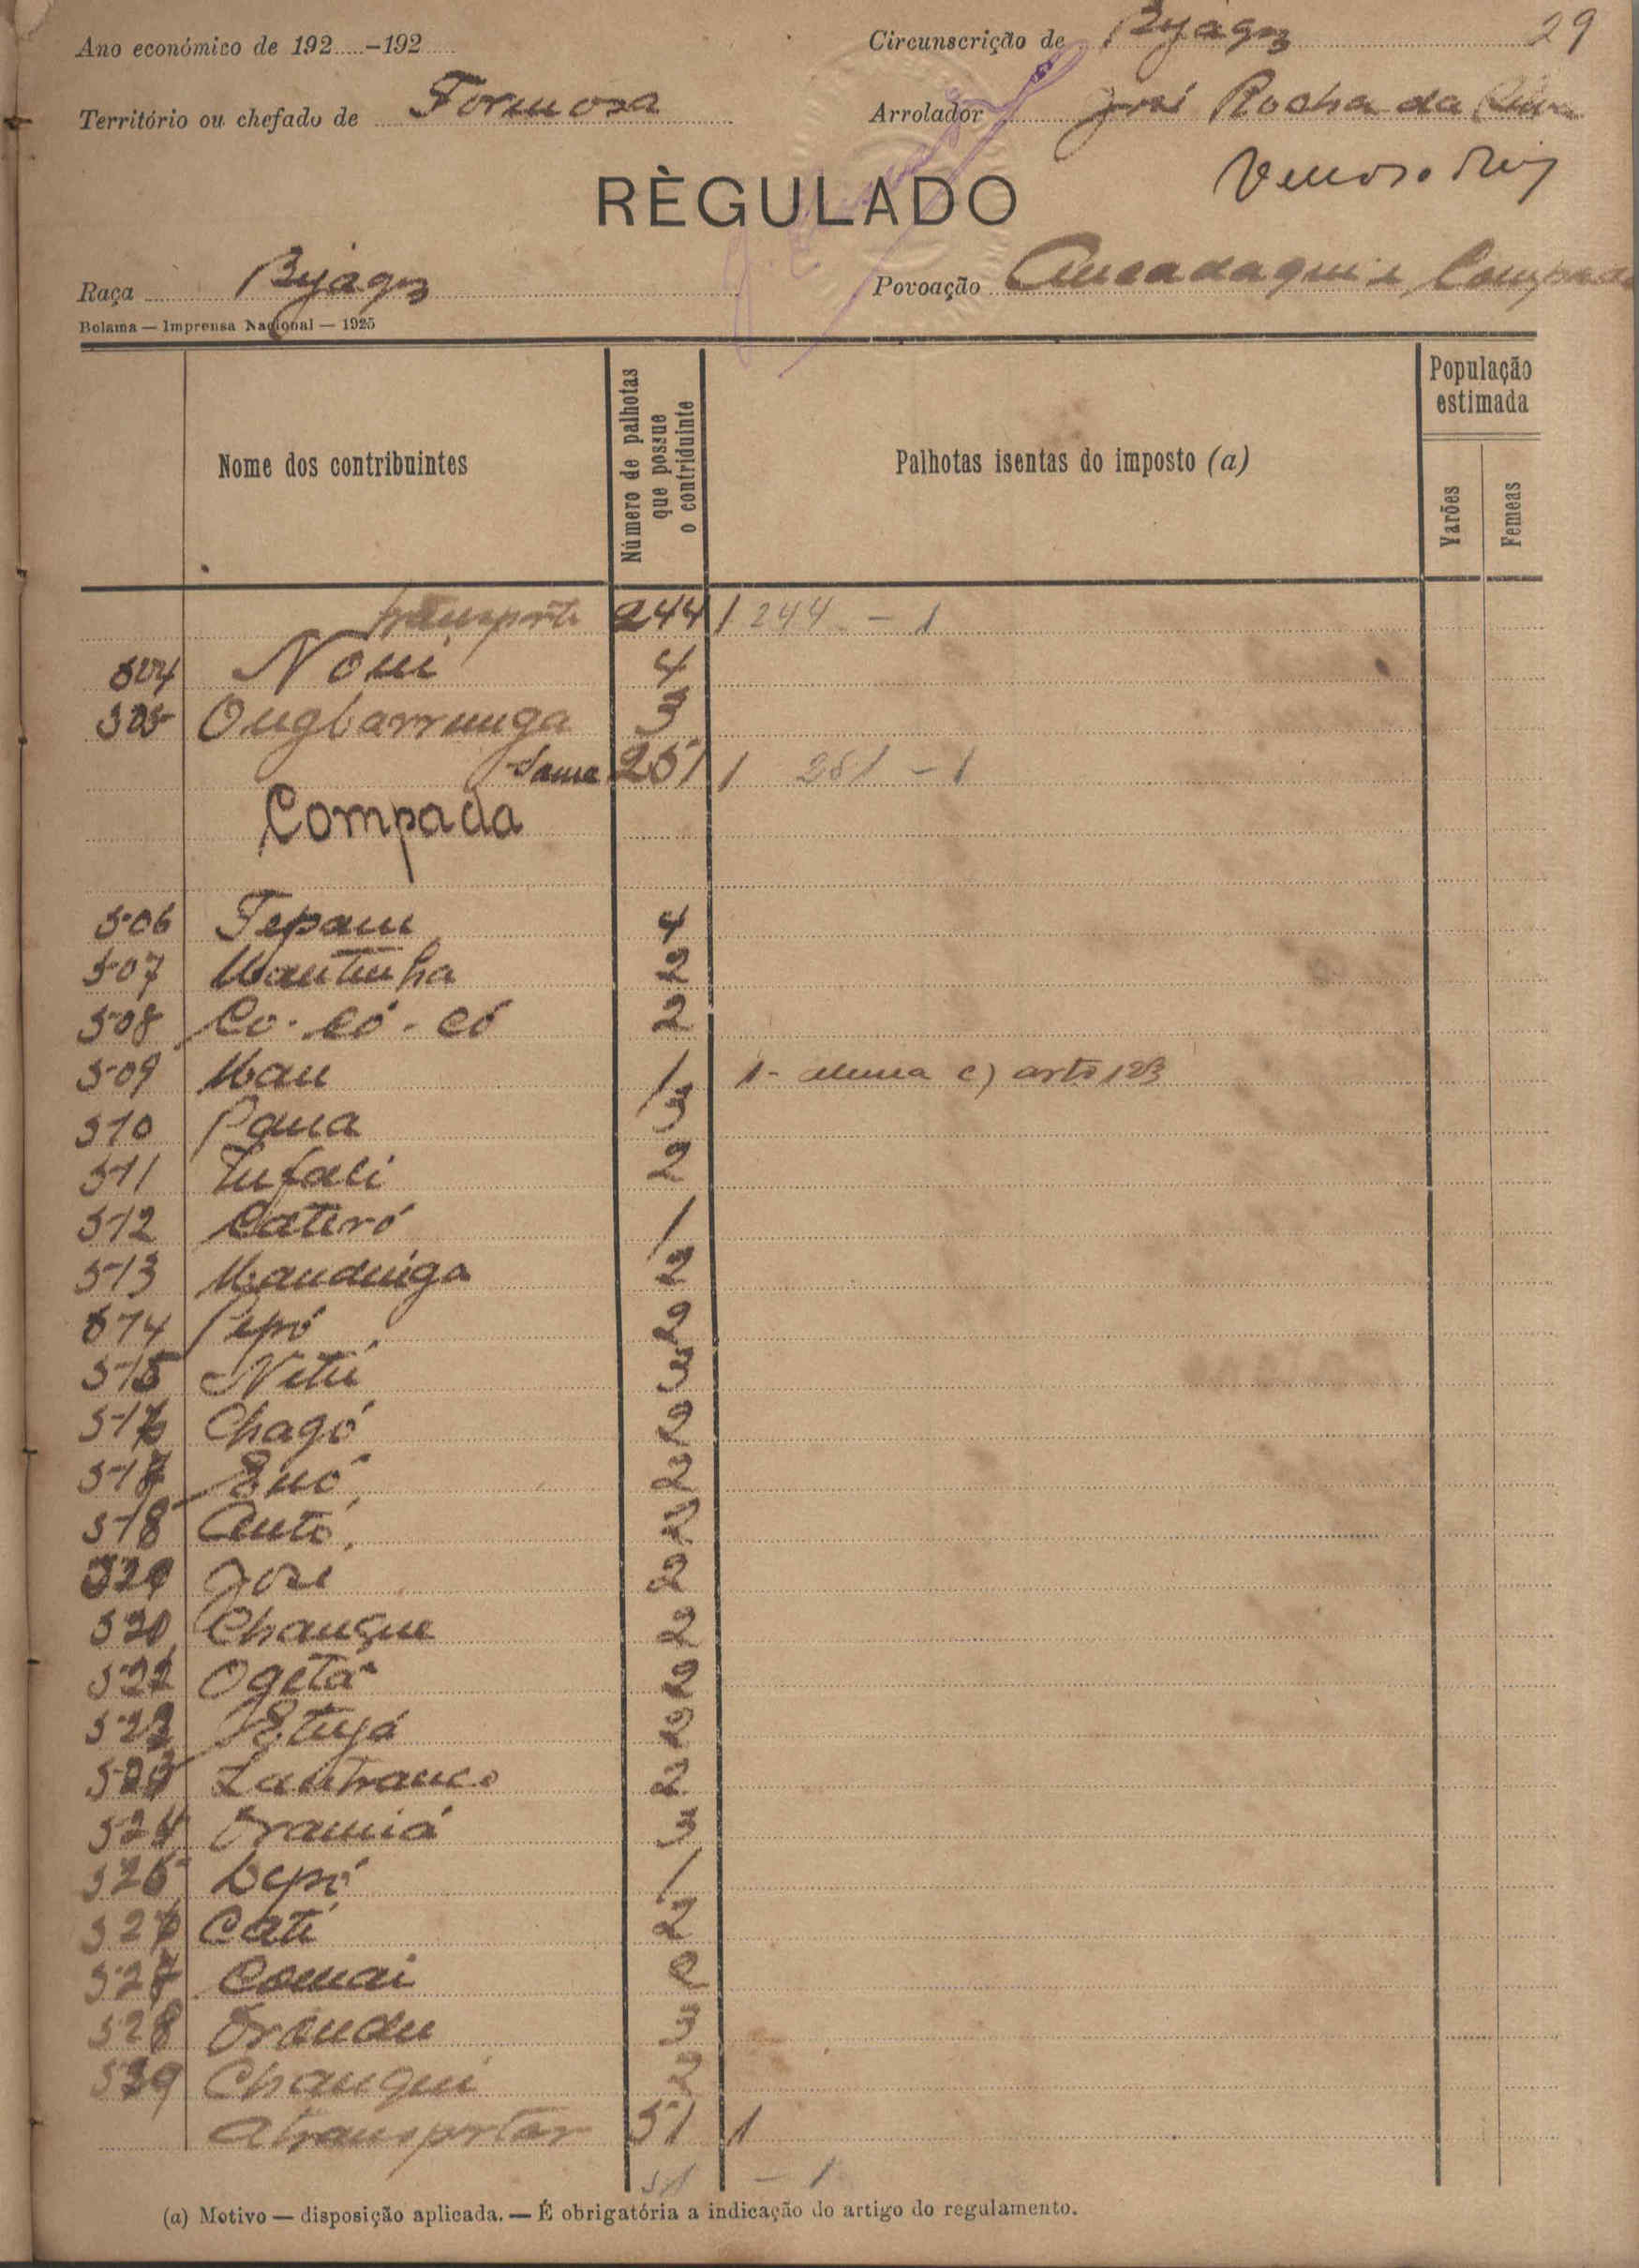 Ano económico de 192.....-192..... Circunscrição de Byágoz 29
Território ou chefado de Formosa Arrolador José Rocha da Silva
RÈGULADO
Raça Byágoz Povoação Ancadaqui e Compada
Bolama — Imprensa Nacional — 1925
Nome dos contribuintes Número de palhotas que possue o contriduinte Palhotas isentas do imposto (a) População estimada Varões Femeas
Transporte 244 1 244 - 1
504 Noui 4
505 Ougbarrunga 3
Soma 251 1 251 - 1
Compada
506 Tepam 4
507 Mantinha 2
508 Co-có-có 2
509 Mau 1 1- alinea c) artº 123
510 Pana 3
511 Tufali 2
512 Cateró 1
513 Mandinga 2
514 Pepó 2
515 Nitú 3
516 Chagó 2
517 Enó 2
518 Antó 2
519 José 2
520 Chauque 2
521 Ogetá 2
522 Etujá 2
523 Lantranco 2
524 Oramiá 3
525 Depó 1
526 Cati 2
527 Comai 2
528 Orandu 3
529 Chaugui 2
A transportar 51 1
51 - 1
(a) Motivo — disposição aplicada. — É obrigatória a indicação do artigo do regulamento.